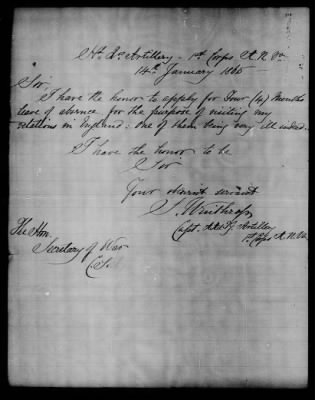 Hd. Qrs Artillery - 1st Corps A. N. Va
14th January 1865
Sir
I have the honor to apply for Four (4) Months
leave of absence for the purpose of visiting my
relations in England. One of them being very ill indeed.
I have the honor to be
Sir
Your obedient servant
S. Winthrop
Capt. A.A.I.G. Artillery
1st Corps A. N. Va
The Hon.
Secretary of War
C.S.